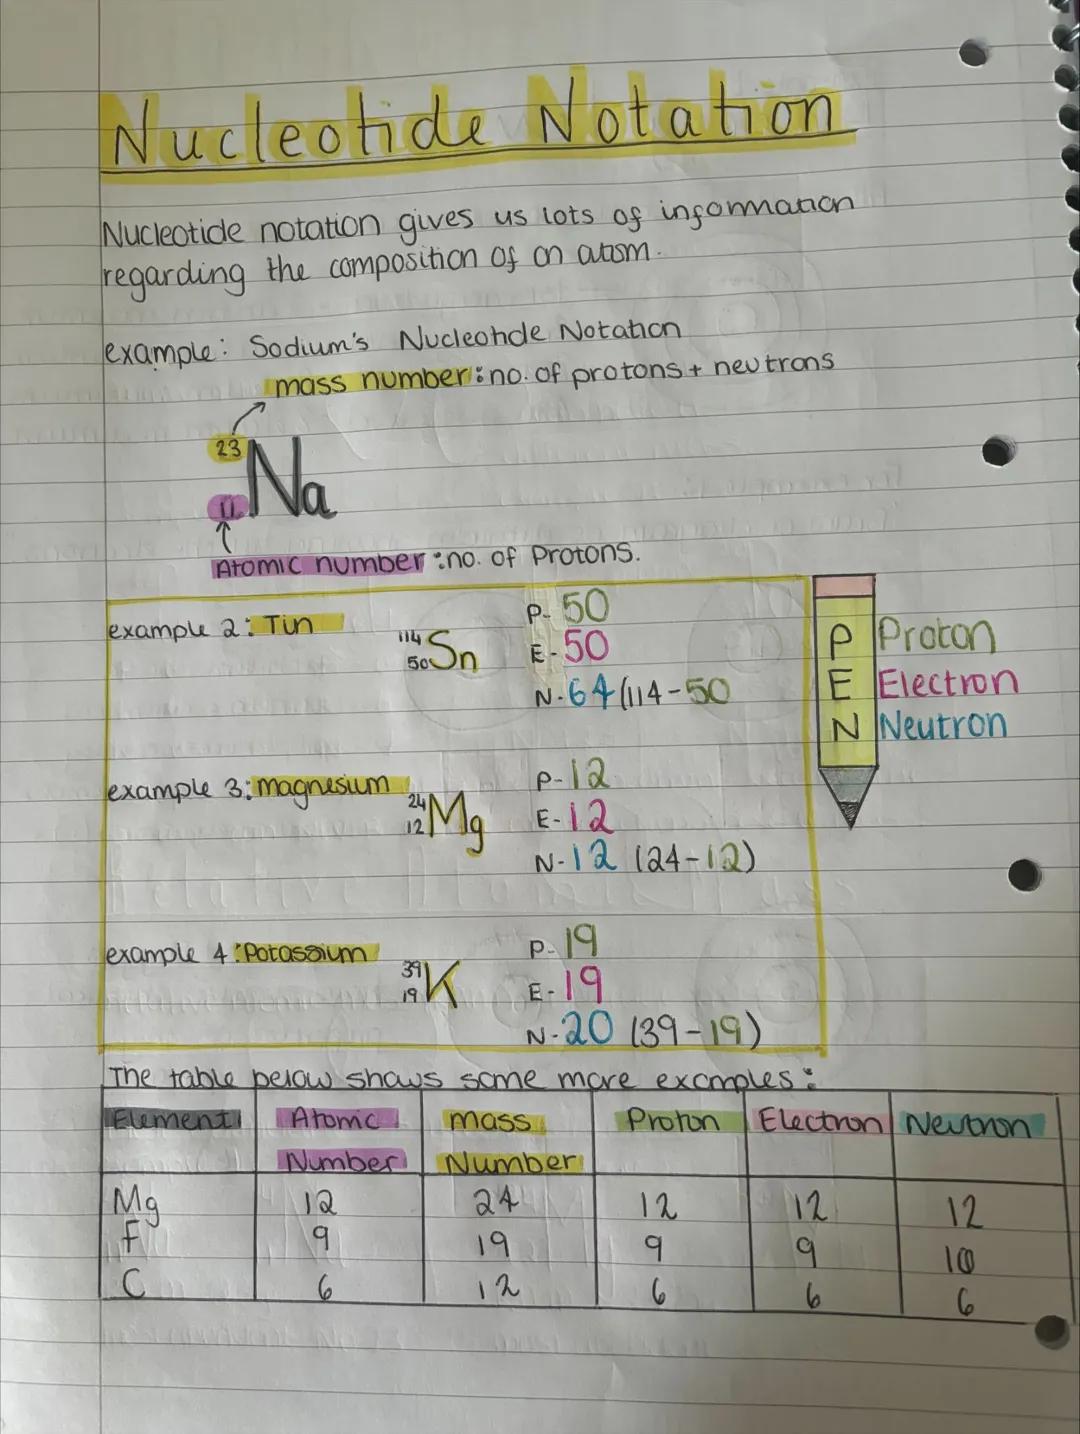 Nucleotide Notation
Nucleotide notation gives us lots of information
regarding the composition of an atom.
example: Sodium's Nucleotide Notation
mass number: no. of protons + neutrons
23
Na
11
Atomic number: no. of Protons.
example 2: Tin
114
50 Sn
P- 50
E- 50
N- 64 (114-50
P Proton
E Electron
N Neutron
example 3: magnesium
24
12 Mg
P- 12
E- 12
N- 12 (24-12)
example 4: Potassium
39
19 K
P- 19
E- 19
N- 20 (39-19)
The table below shows some more examples:
Element Atomic Number mass Number Proton Electron Neutron
Mg 12 24 12 12 12
F 9 19 9 9 10
C 6 12 6 6 6